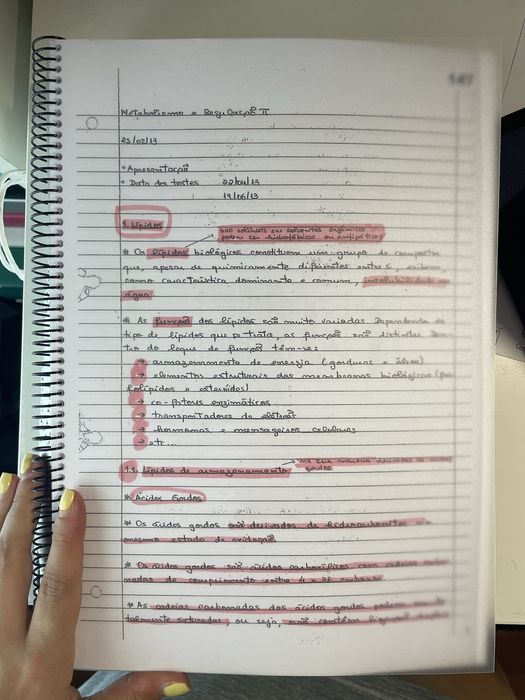 147
Metabolismo e Regulação II
25/02/13
• Apresentação
• Data dos testes 22/04/13
19/06/13
1. Lípidos
são solúveis em solventes orgânicos
podem ser hidrofóbicos ou antipáticos
* Os lípidos biológicos constituem um grupo de compostos
que, apesar de quimicamente diferentes entre si,
como característica dominante e comum, insolubilidade em
água
* As funções dos lípidos são muito variadas Dependendo do
tipo de lípidos que se trata, as funções são distintas Den-
tro do leque de funções têm-se:
→ armazenamento de energia (gorduras e óleos)
→ elementos estruturais das membranas biológicas (fos
folípidos e esteróides)
→ co-fatores enzimáticos
→ transportadores de eletrões
→ hormonas e mensageiros celulares
→ etc...
1.1. Lípidos de armazenamento → na sua maioria derivados de ácidos
gordos
* Ácidos Gordos
* Os ácidos gordos são derivados de hidrocarbonetos no
mesmo estado de oxidação
* Os ácidos gordos são ácidos carboxílicos com cadeias carbo-
nadas de comprimento entre 4 e 36 carbonos
* As cadeias carbonadas dos ácidos gordos podem ser to-
talmente saturadas, ou seja, não contêm